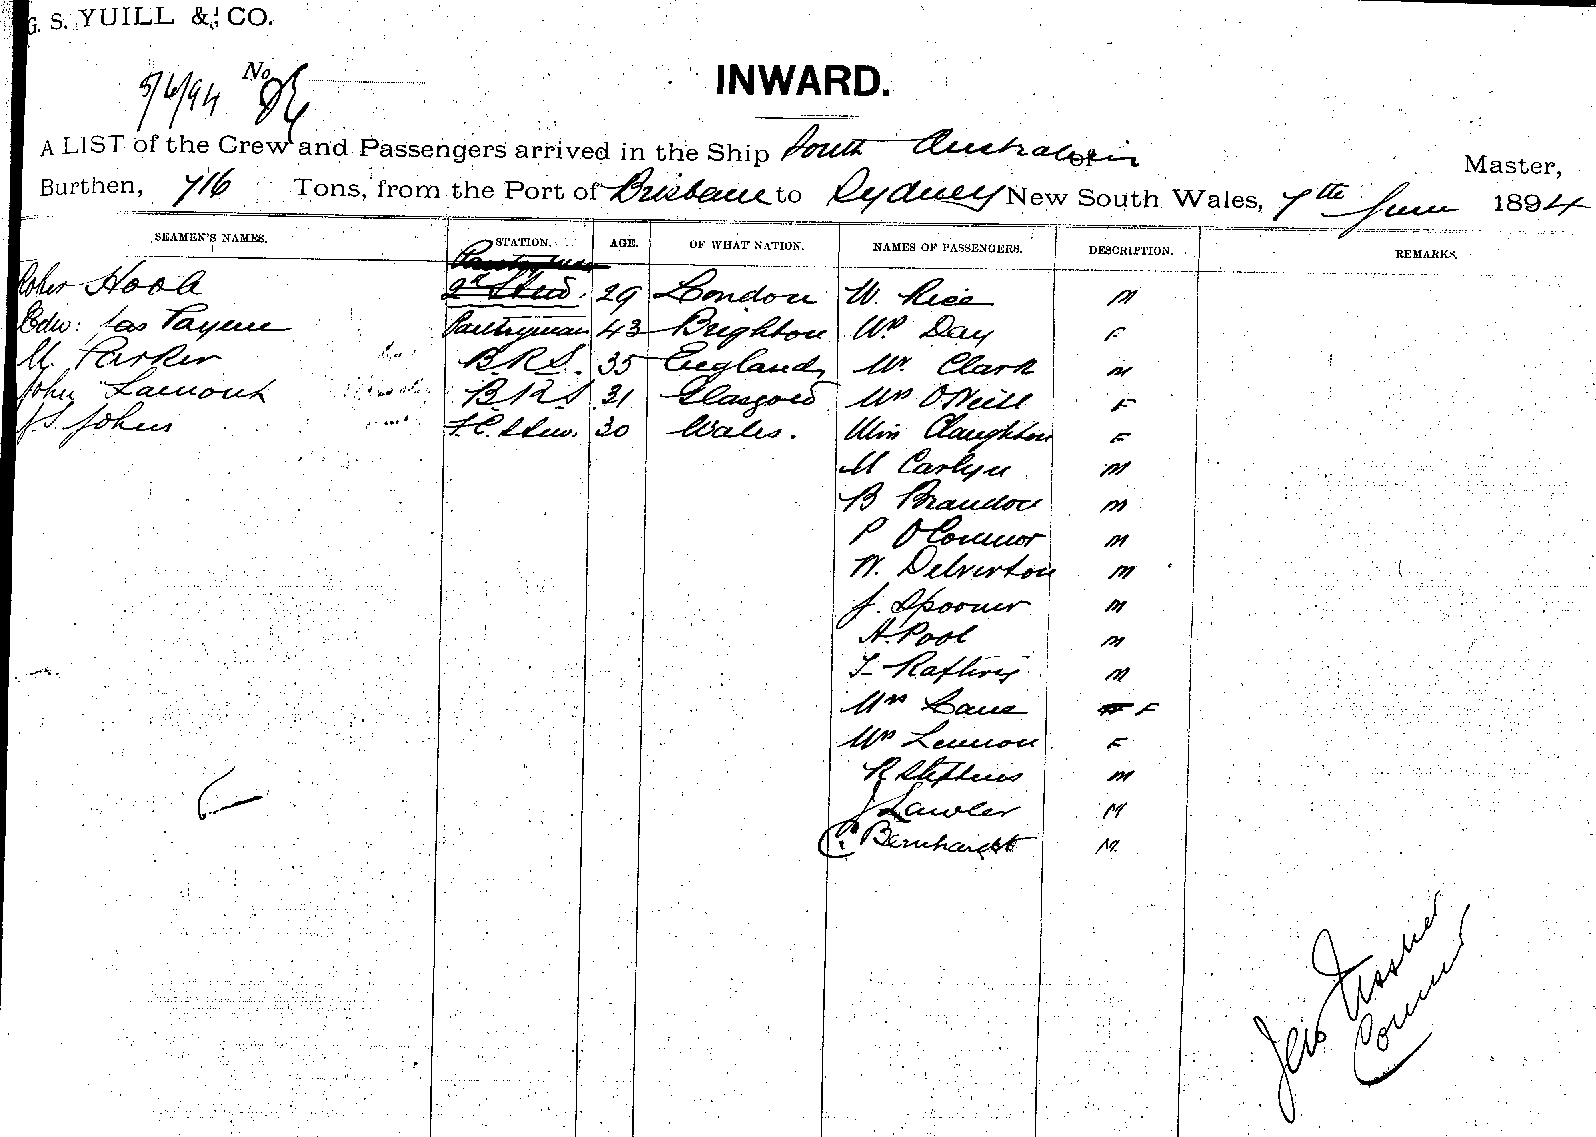 G. S. YUILL & CO.
5/6/94 No
INWARD.
A LIST of the Crew and Passengers arrived in the Ship South Australian
Master,
Burthen, 716 Tons, from the Port of Brisbane to Sydney New South Wales, 7th June 1894
SEAMEN'S NAMES. STATION. AGE. OF WHAT NATION. NAMES OF PASSENGERS. DESCRIPTION. REMARKS.
Pantryman
Hook 2nd Stew. 29 London W. Rice M
Edw: Jas Payne Pantryman 43 Brighton Mrs Day F
M. Parker B.R.S. 35 England Mr. Clark M
John Lamont B.R.S 31 Glasgow Mrs O'Neill F
J S. Johns F.C. Stew. 30 Wales. Miss Claughton F
M Carlyn M
B Brandon M
P O'Connor M
W. Delverton M
J. Spooner M
A. Pool M
T Raftery M
Mrs Lane F
Mrs Lennon F
R Stephens M
J Lawler M
Bernhardt M